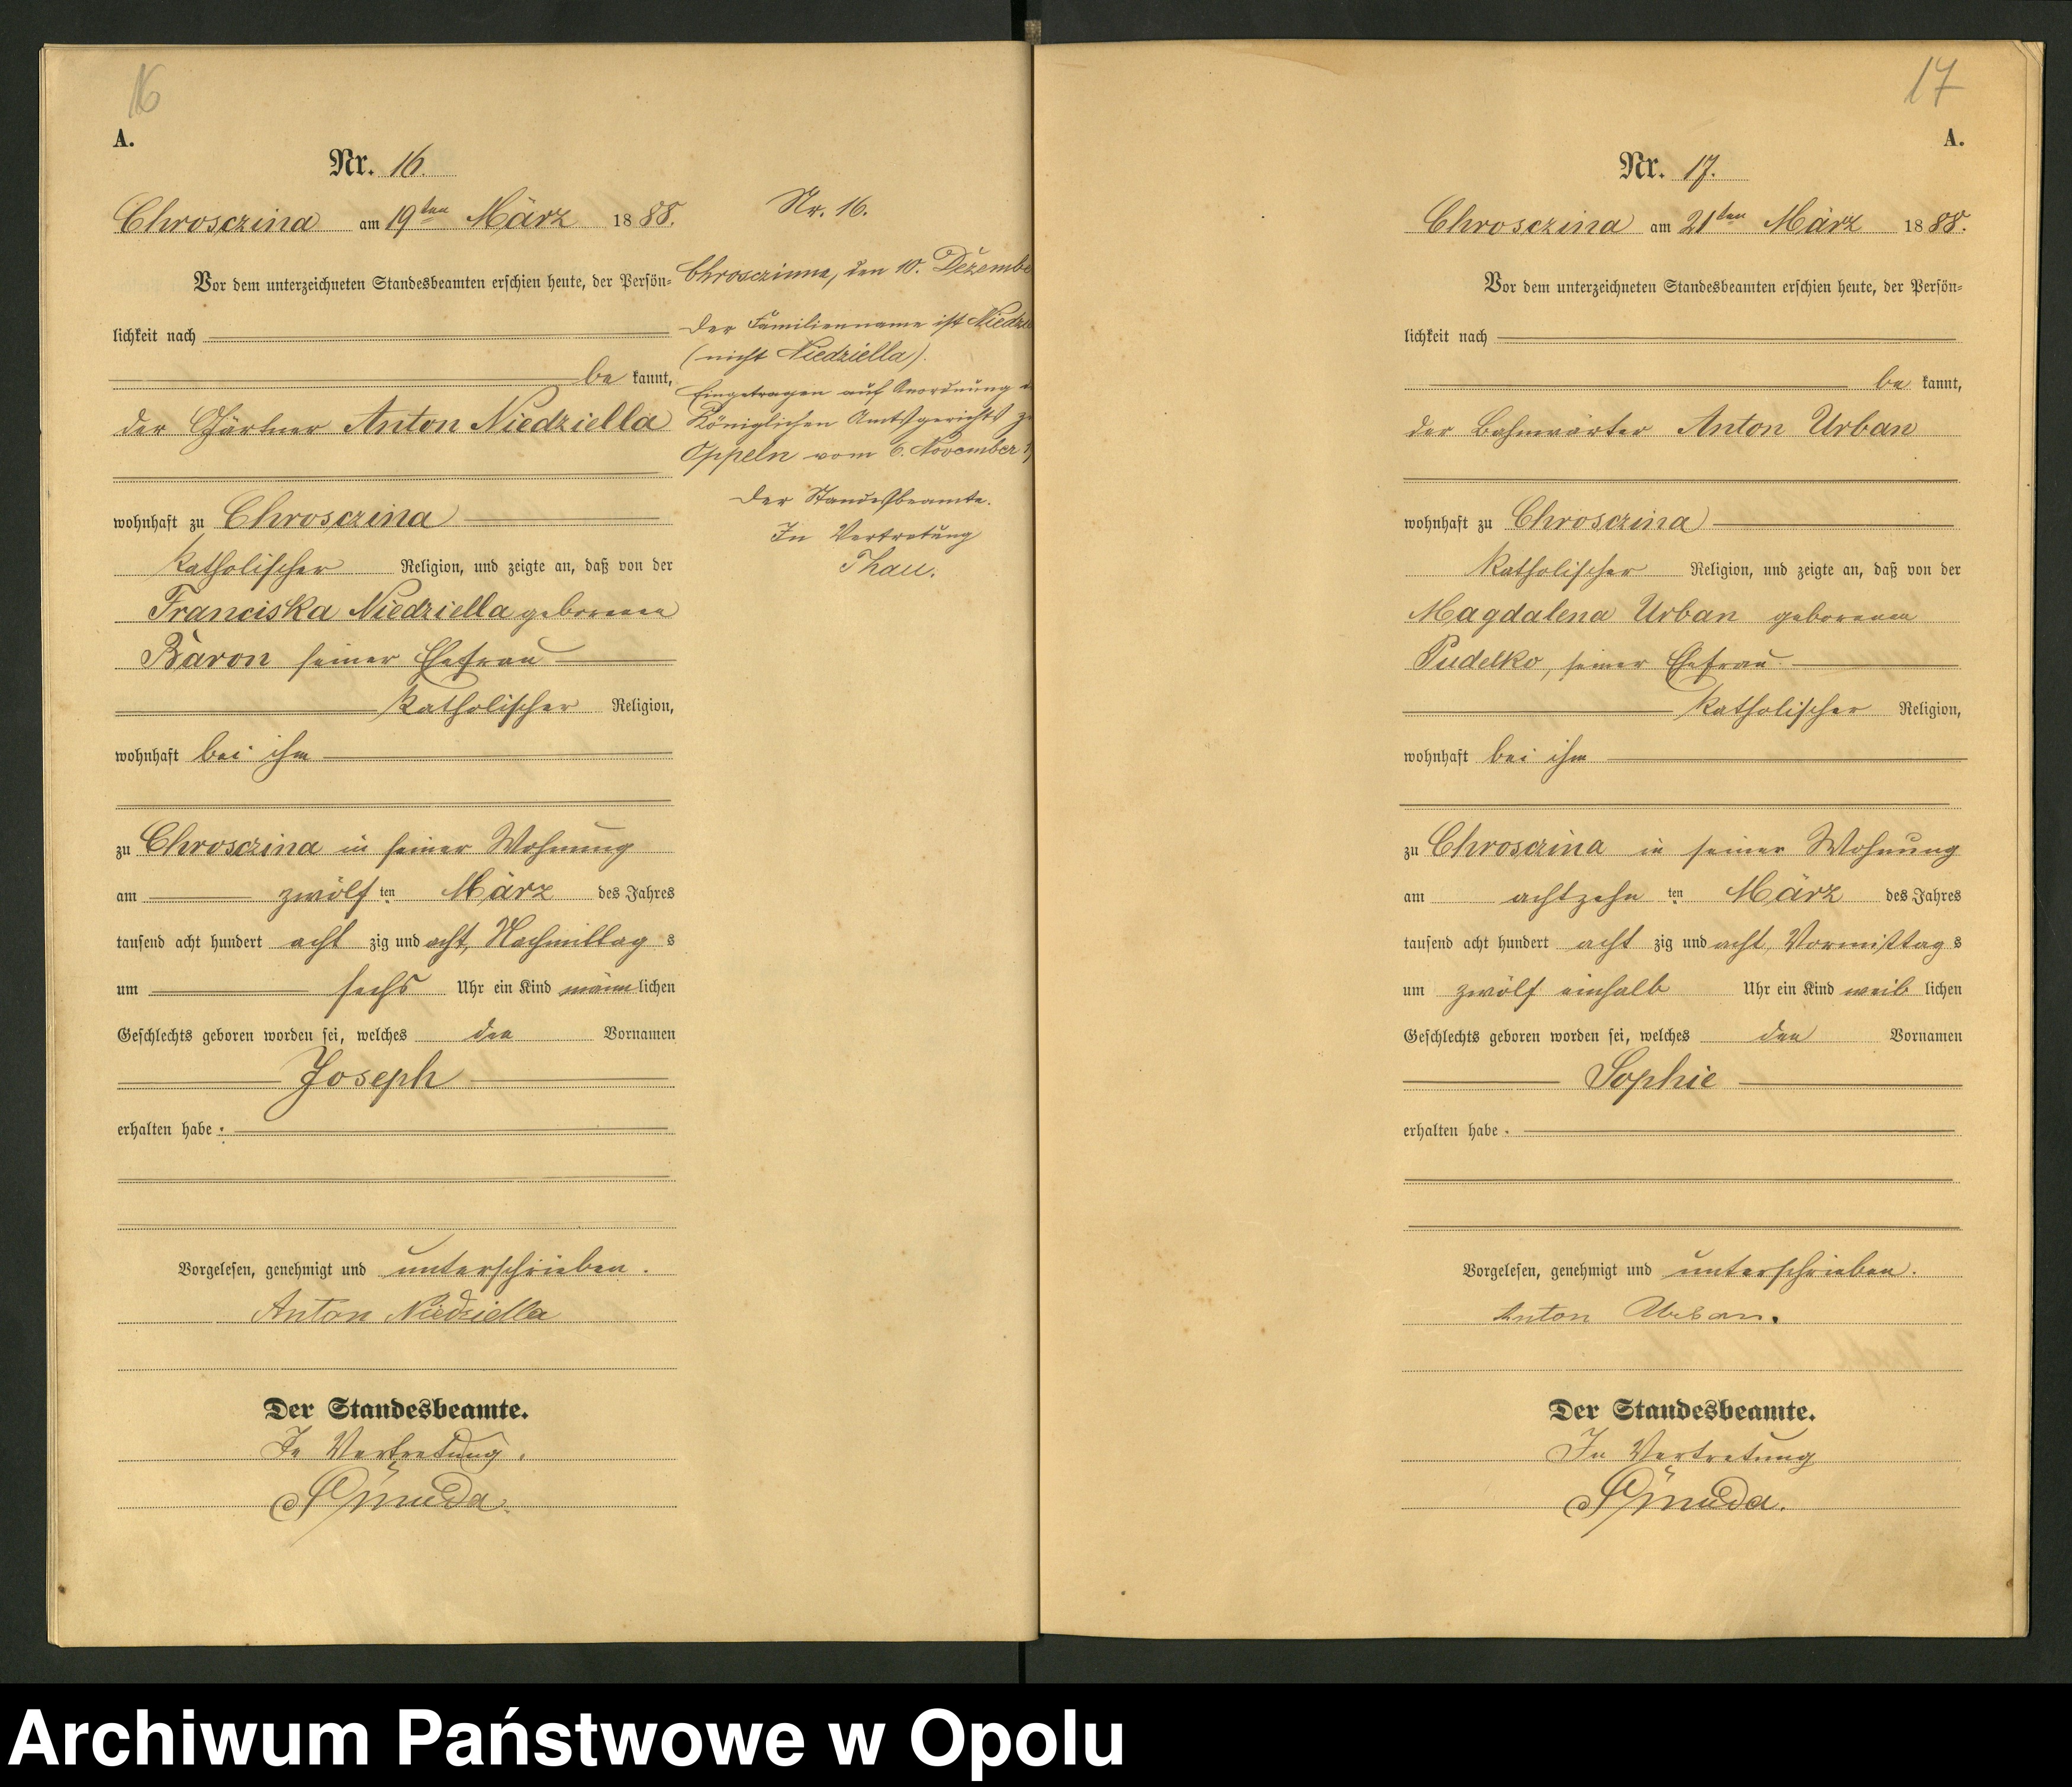 16
A.
Nr. 16.
Chrosczina am 19ten März 1888.
Vor dem unterzeichneten Standesbeamten erschien heute, der Persön-
lichkeit nach
be kannt,
der Gärtner Anton Niedziella
wohnhaft zu Chrosczina
katholischer Religion, und zeigte an, daß von der
Franciska Niedziella geborenen
Baron seiner Ehefrau
katholischer Religion,
wohnhaft bei ihm
zu Chrosczina in seiner Wohnung
am zwölf ten März des Jahres
tausend acht hundert acht zig und acht, Nachmittag s
um sechs Uhr ein Kind männ lichen
Geschlechts geboren worden sei, welches den Vornamen
Joseph
erhalten habe.
Vorgelesen, genehmigt und unterschrieben.
Anton Niedziella
Der Standesbeamte.
In Vertretung.
Nr. 16.
Chrosczinna, den 10. Dezembe
Der Familienname ist Niedzi
(nicht Niedziella).
Eingetragen auf Anordnung
Königlichen Amtsgerichts z
Oppeln vom 6. November
Der Standesbeamte.
In Vertretung
Thau.
17
A.
Nr. 17.
Chrosczina am 21ten März 1888.
Vor dem unterzeichneten Standesbeamten erschien heute, der Persön-
lichkeit nach
be kannt,
der Bahnwärter Anton Urban
wohnhaft zu Chrosczina
katholischer Religion, und zeigte an, daß von der
Magdalena Urban geborenen
Pudelko, seiner Ehefrau
katholischer Religion,
wohnhaft bei ihm
zu Chrosczina in seiner Wohnung
am achtzehn ten März des Jahres
tausend acht hundert acht zig und acht, Vormittag s
um zwölf einhalb Uhr ein Kind weib lichen
Geschlechts geboren worden sei, welches den Vornamen
Sophie
erhalten habe.
Vorgelesen, genehmigt und unterschrieben.
Anton Urban.
Der Standesbeamte.
In Vertretung
Archiwum Państwowe w Opolu